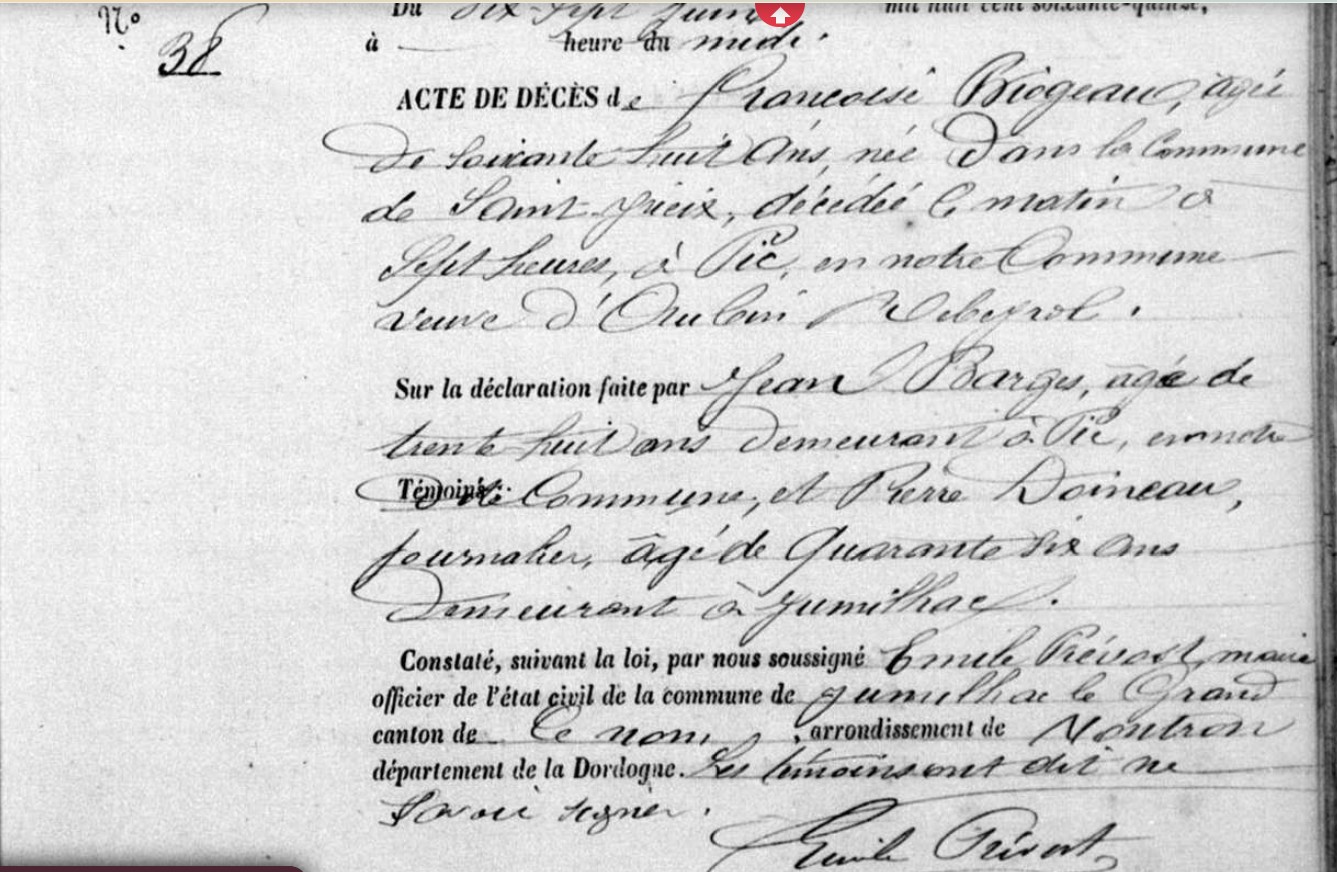 N°
38
Du dix-sept Juin mil huit cent soixante-quinze,
à heure du midi.
ACTE DE DÉCÈS de Francoise Biogeau, agée
de soixante huit ans, née Dans la Commune
de Saint-Yrieix, décédée ce matin à
Sept heures, à Pic, en notre Commune
veuve d'Aubin Rebeyrol.
Sur la déclaration faite par Jean Barges, âgé de
trente huit ans demeurant à Pic, en notre
Témoins: dite Commune, et Pierre Doineau,
journalier, âgé de Quarante six ans
Demeurant à Jumilhac.
Constaté, suivant la loi, par nous soussigné Emile Prévost, maire
officier de l'état civil de la commune de Jumilhac le Grand
canton de Ce nom, arrondissement de Nontron
département de la Dordogne. Les témoins ont dit ne
Savoir signer.
Emile Prévost